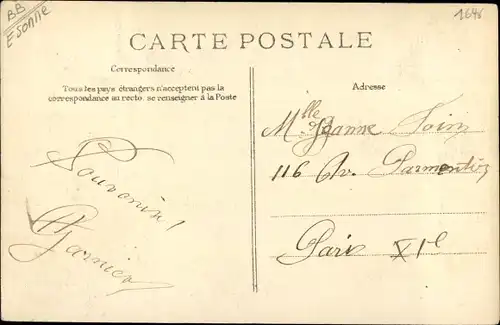 BB
Esonne
1648
CARTE POSTALE
Correspondance
Tous les pays étrangers n'acceptent pas la
correspondance au recto. se renseigner à la Poste
Souvenirs !
Garnier
Adresse
Mlle Jeanne
116 Av. Parmentier
Paris XIe